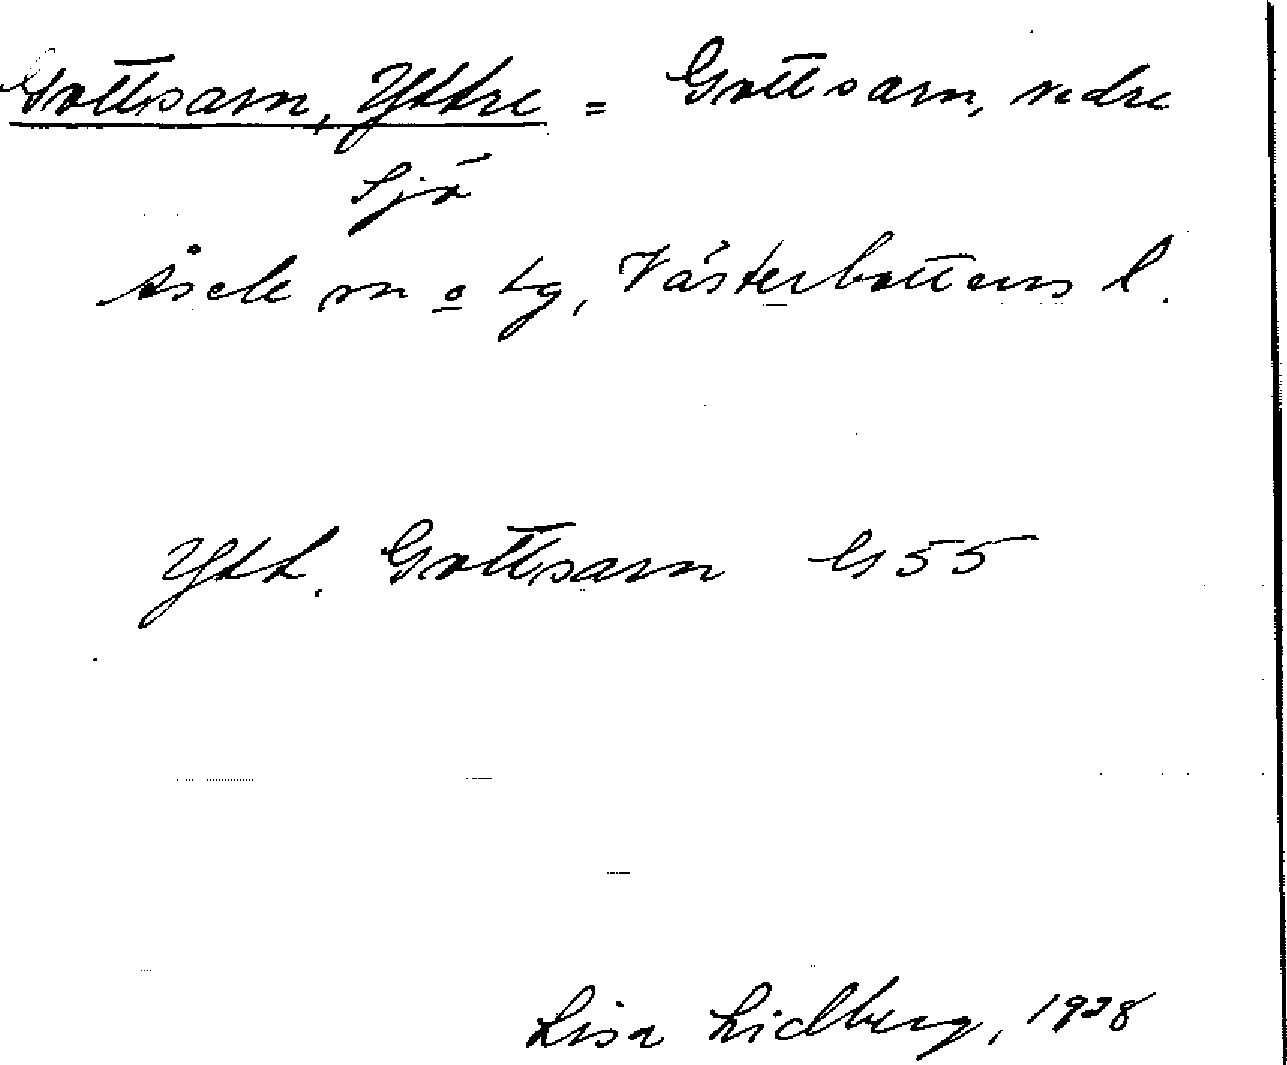 Gottsarn, Yttre = Gottsarn, nedre
Sjö
Åsele sn o tg, Västerbottens l.
Ytt. Gottsarn G 55
Lisa Lidberg, 1928